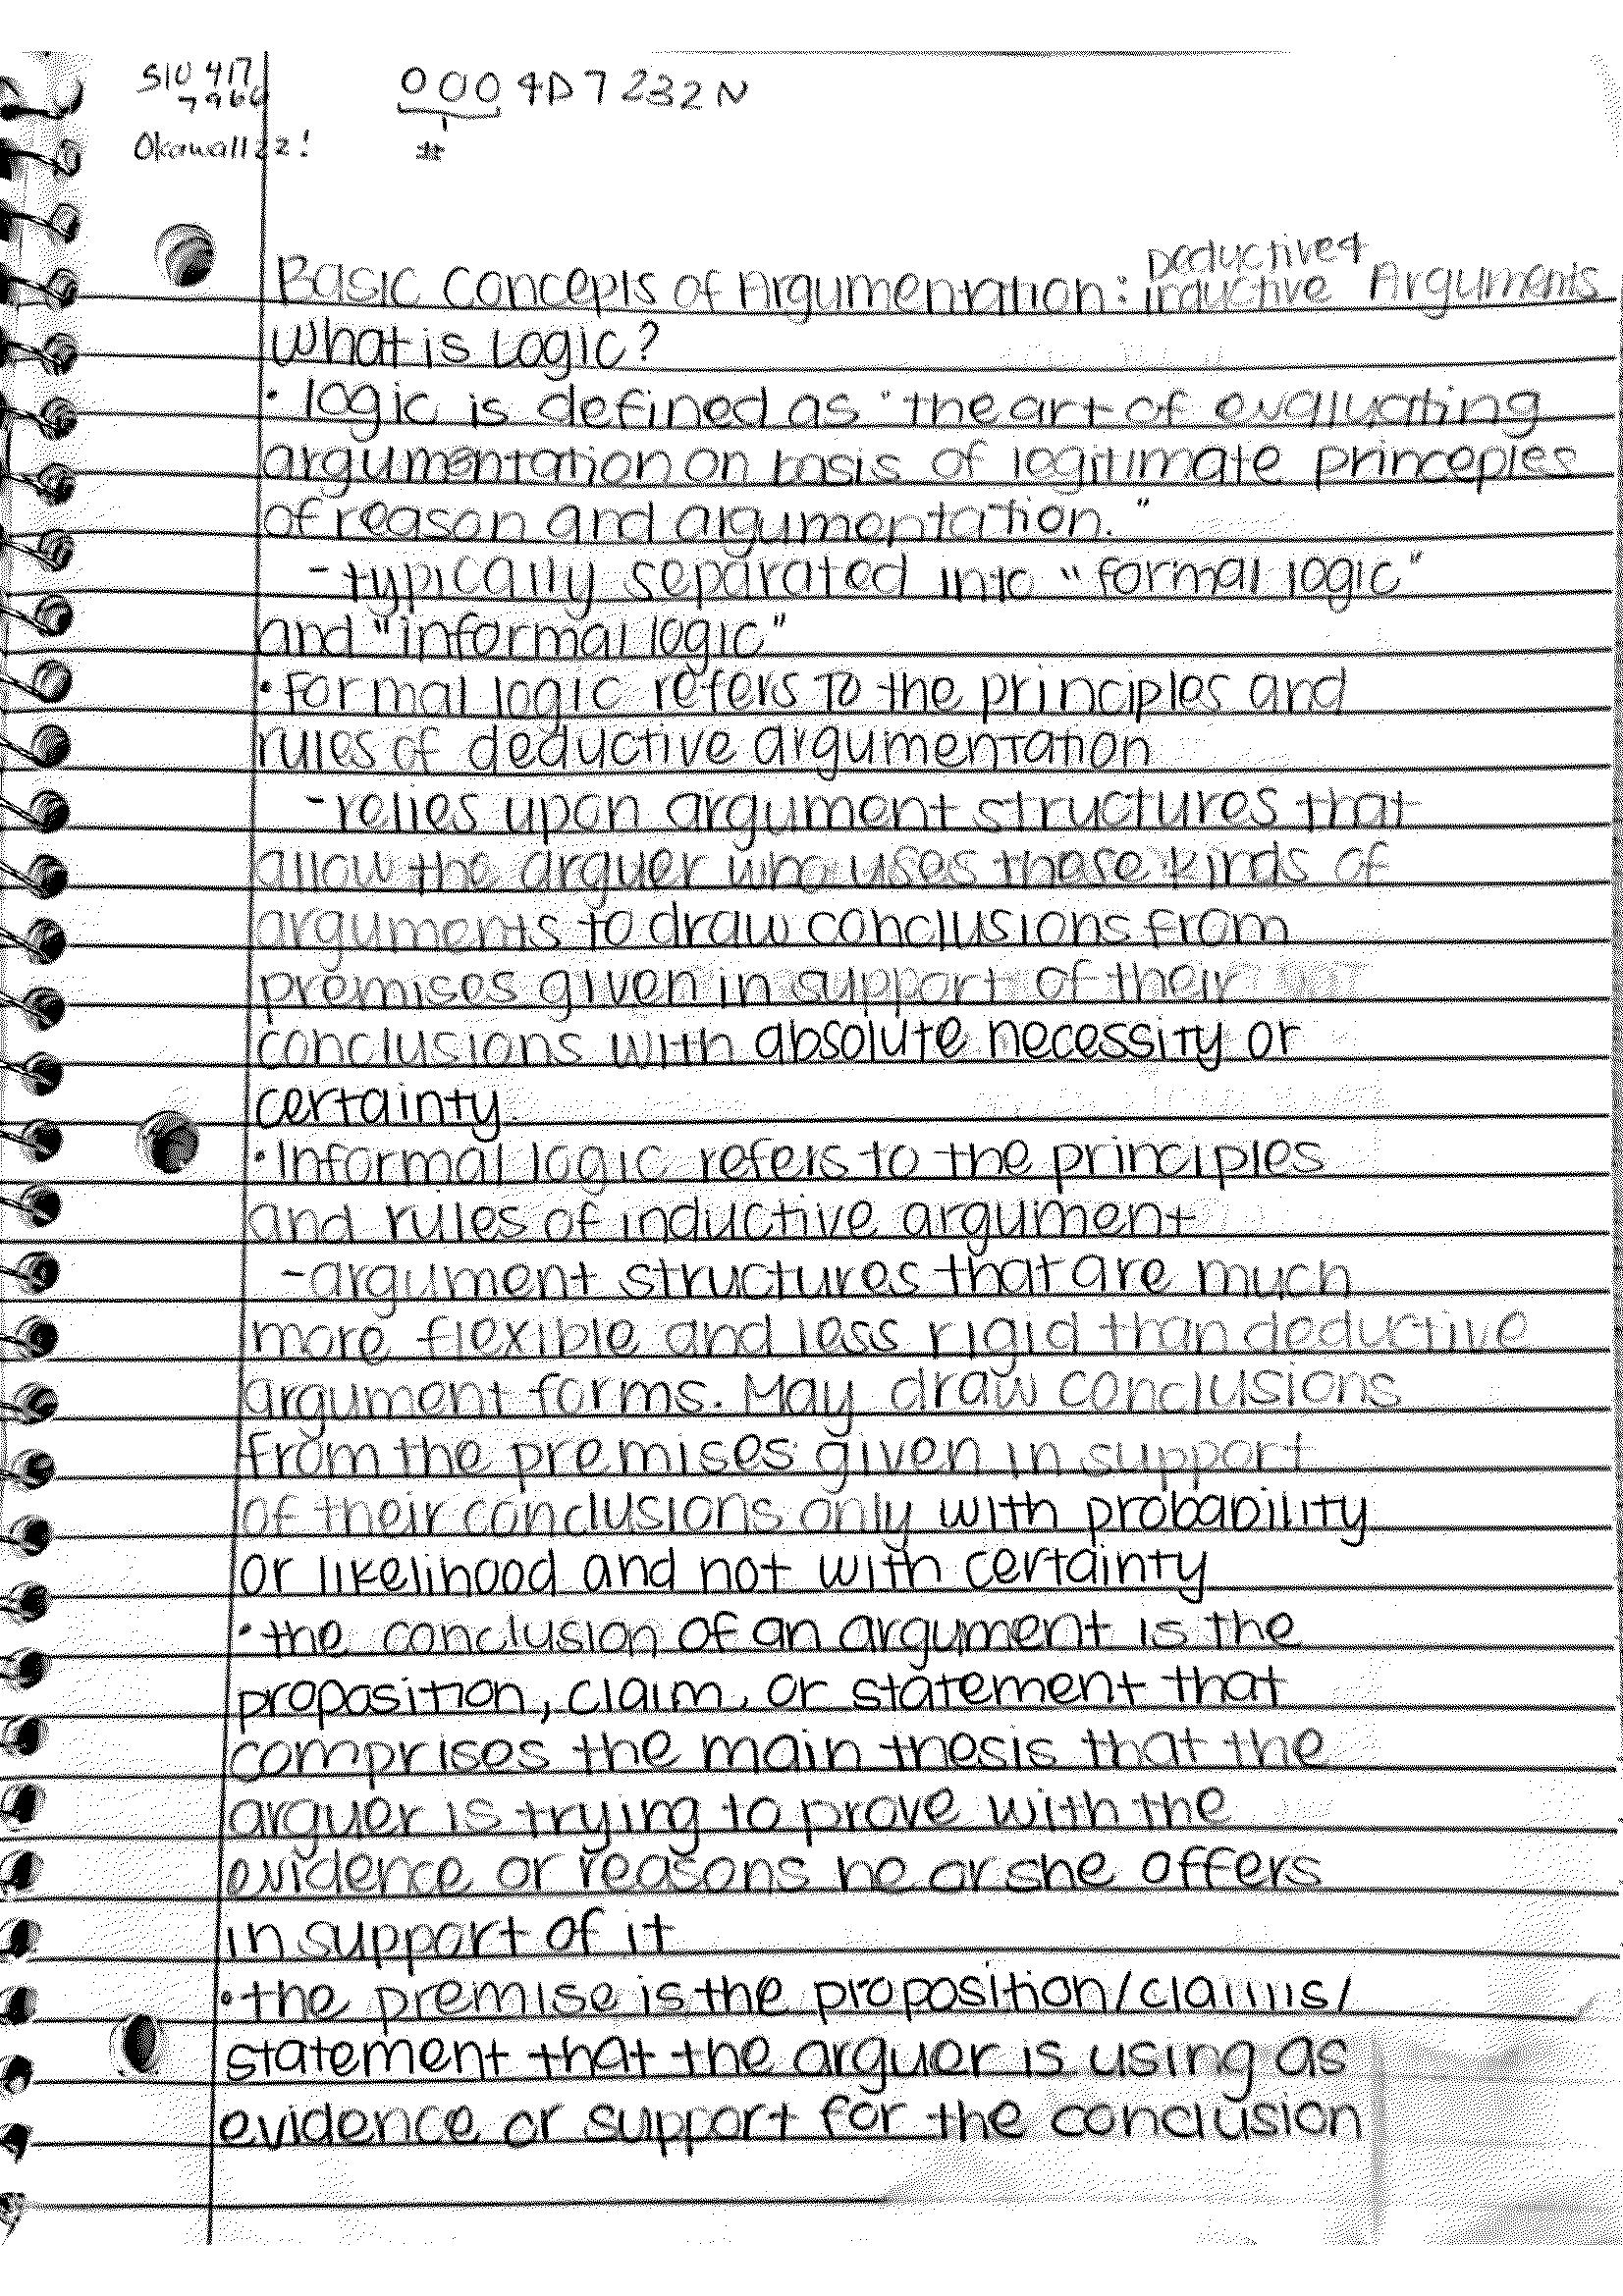 510 417
7966
Okawa1122!
0004D7232N
#
Basic Concepts of Argumentation: Deductive & inductive Arguments
What is Logic?
• logic is defined as "the art of evaluating
argumentation on basis of legitimate princeples
of reason and argumentation."
- typically separated into "formal logic"
and "informal logic"
• Formal logic refers to the principles and
rules of deductive argumentation
- relies upon argument structures that
allow the arguer who uses these kinds of
arguments to draw conclusions from
premises given in support of their
conclusions with absolute necessity or
certainty.
• Informal logic refers to the principles
and rules of inductive argument
- argument structures that are much
more flexible and less rigid than deductive
argument forms. May draw conclusions
from the premises given in support
of their conclusions only with probability
or likelihood and not with certainty
• the conclusion of an argument is the
proposition, claim, or statement that
comprises the main thesis that the
arguer is trying to prove with the
evidence or reasons he or she offers
in support of it
• the premise is the proposition/claims/
statement that the arguer is using as
evidence or support for the conclusion